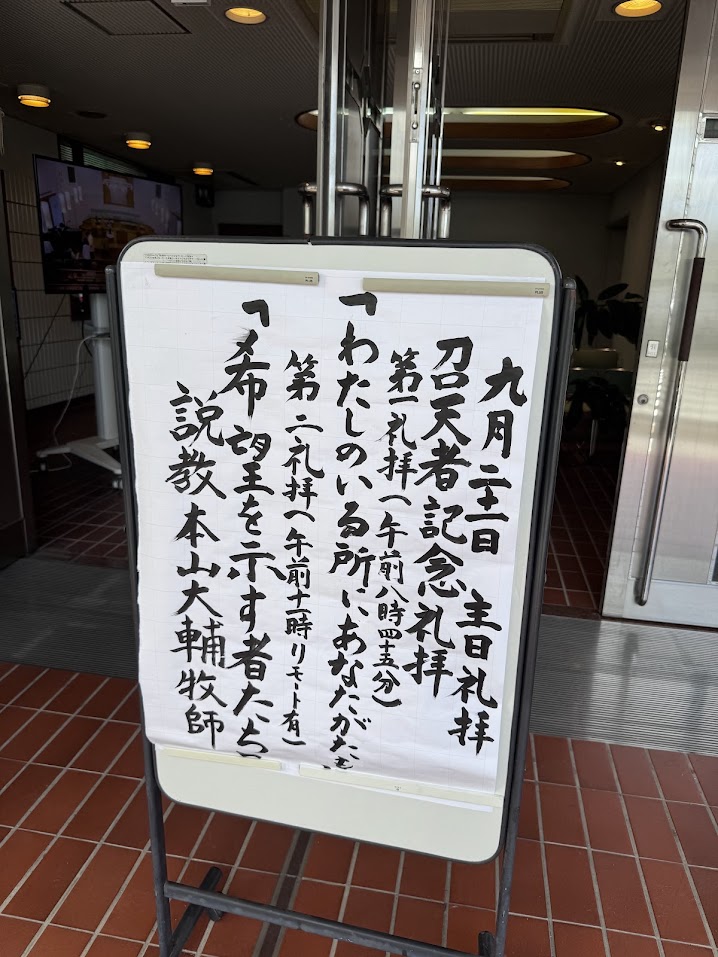 九月二十一日 主日礼拝
召天者記念礼拝
第一礼拝(午前八時四十五分)
「わたしのいる所にあなたがたも」
第二礼拝(午前十一時リモート有)
「希望を示す者たち」
説教 本山大輔牧師